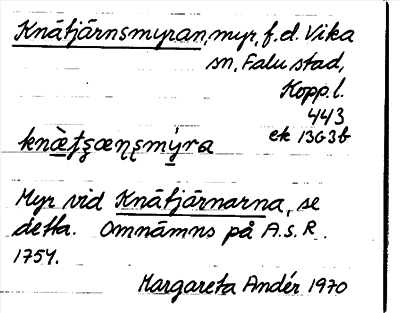 Knåtjärnsmyran, myr, f.d. Vika
sn, Falu stad,
Kopp.l.
443
ek 13G3b
Myr vid Knåtjärnarna, se
detta. Omnämns på A.S.R.
1754.
Margareta Andér 1970